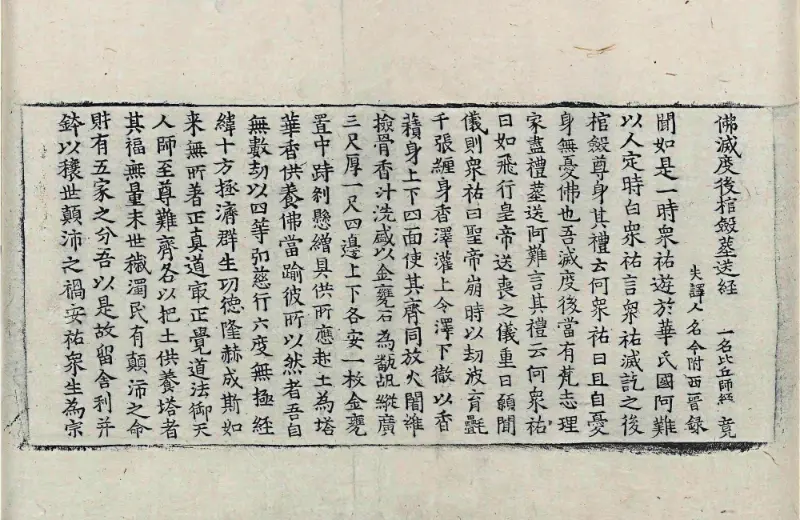 佛滅度後棺殮葬送經 一名比丘師經 竟
失譯人名今附西晉錄
聞如是一時衆祐遊於華氏國阿難
以人定時白衆祐言衆祐滅訖之後
棺殮尊身其禮云何衆祐曰且自憂
身無憂佛也吾滅度後當有梵志理
家盡禮葬送阿難言其禮云何衆祐
曰如飛行皇帝送喪之儀重曰願聞
儀則衆祐曰聖帝崩時以劫波育氎
千張纏身香澤灌上令澤下徹以香
𧂐身上下四面使其齊同放火闍維
撿骨香汁洗盛以金甕石為縱廣
三尺厚一尺四邊上下各安一枚金甕
置中跱剎懸繒具供所應起土為塔
華香供養佛當踰彼所以然者吾自
無數劫以四等慈行六度無極經
緯十方拯濟群生功德隆赫成斯如
来無所著正真道㝡正覺道法御天
人師至尊難齊各以把土供養塔者
其福無量末世穢濁民有顛沛之命
財有五家之分吾以是故留舍利并
鉢以穰世顛沛之禍安祐衆生為宗